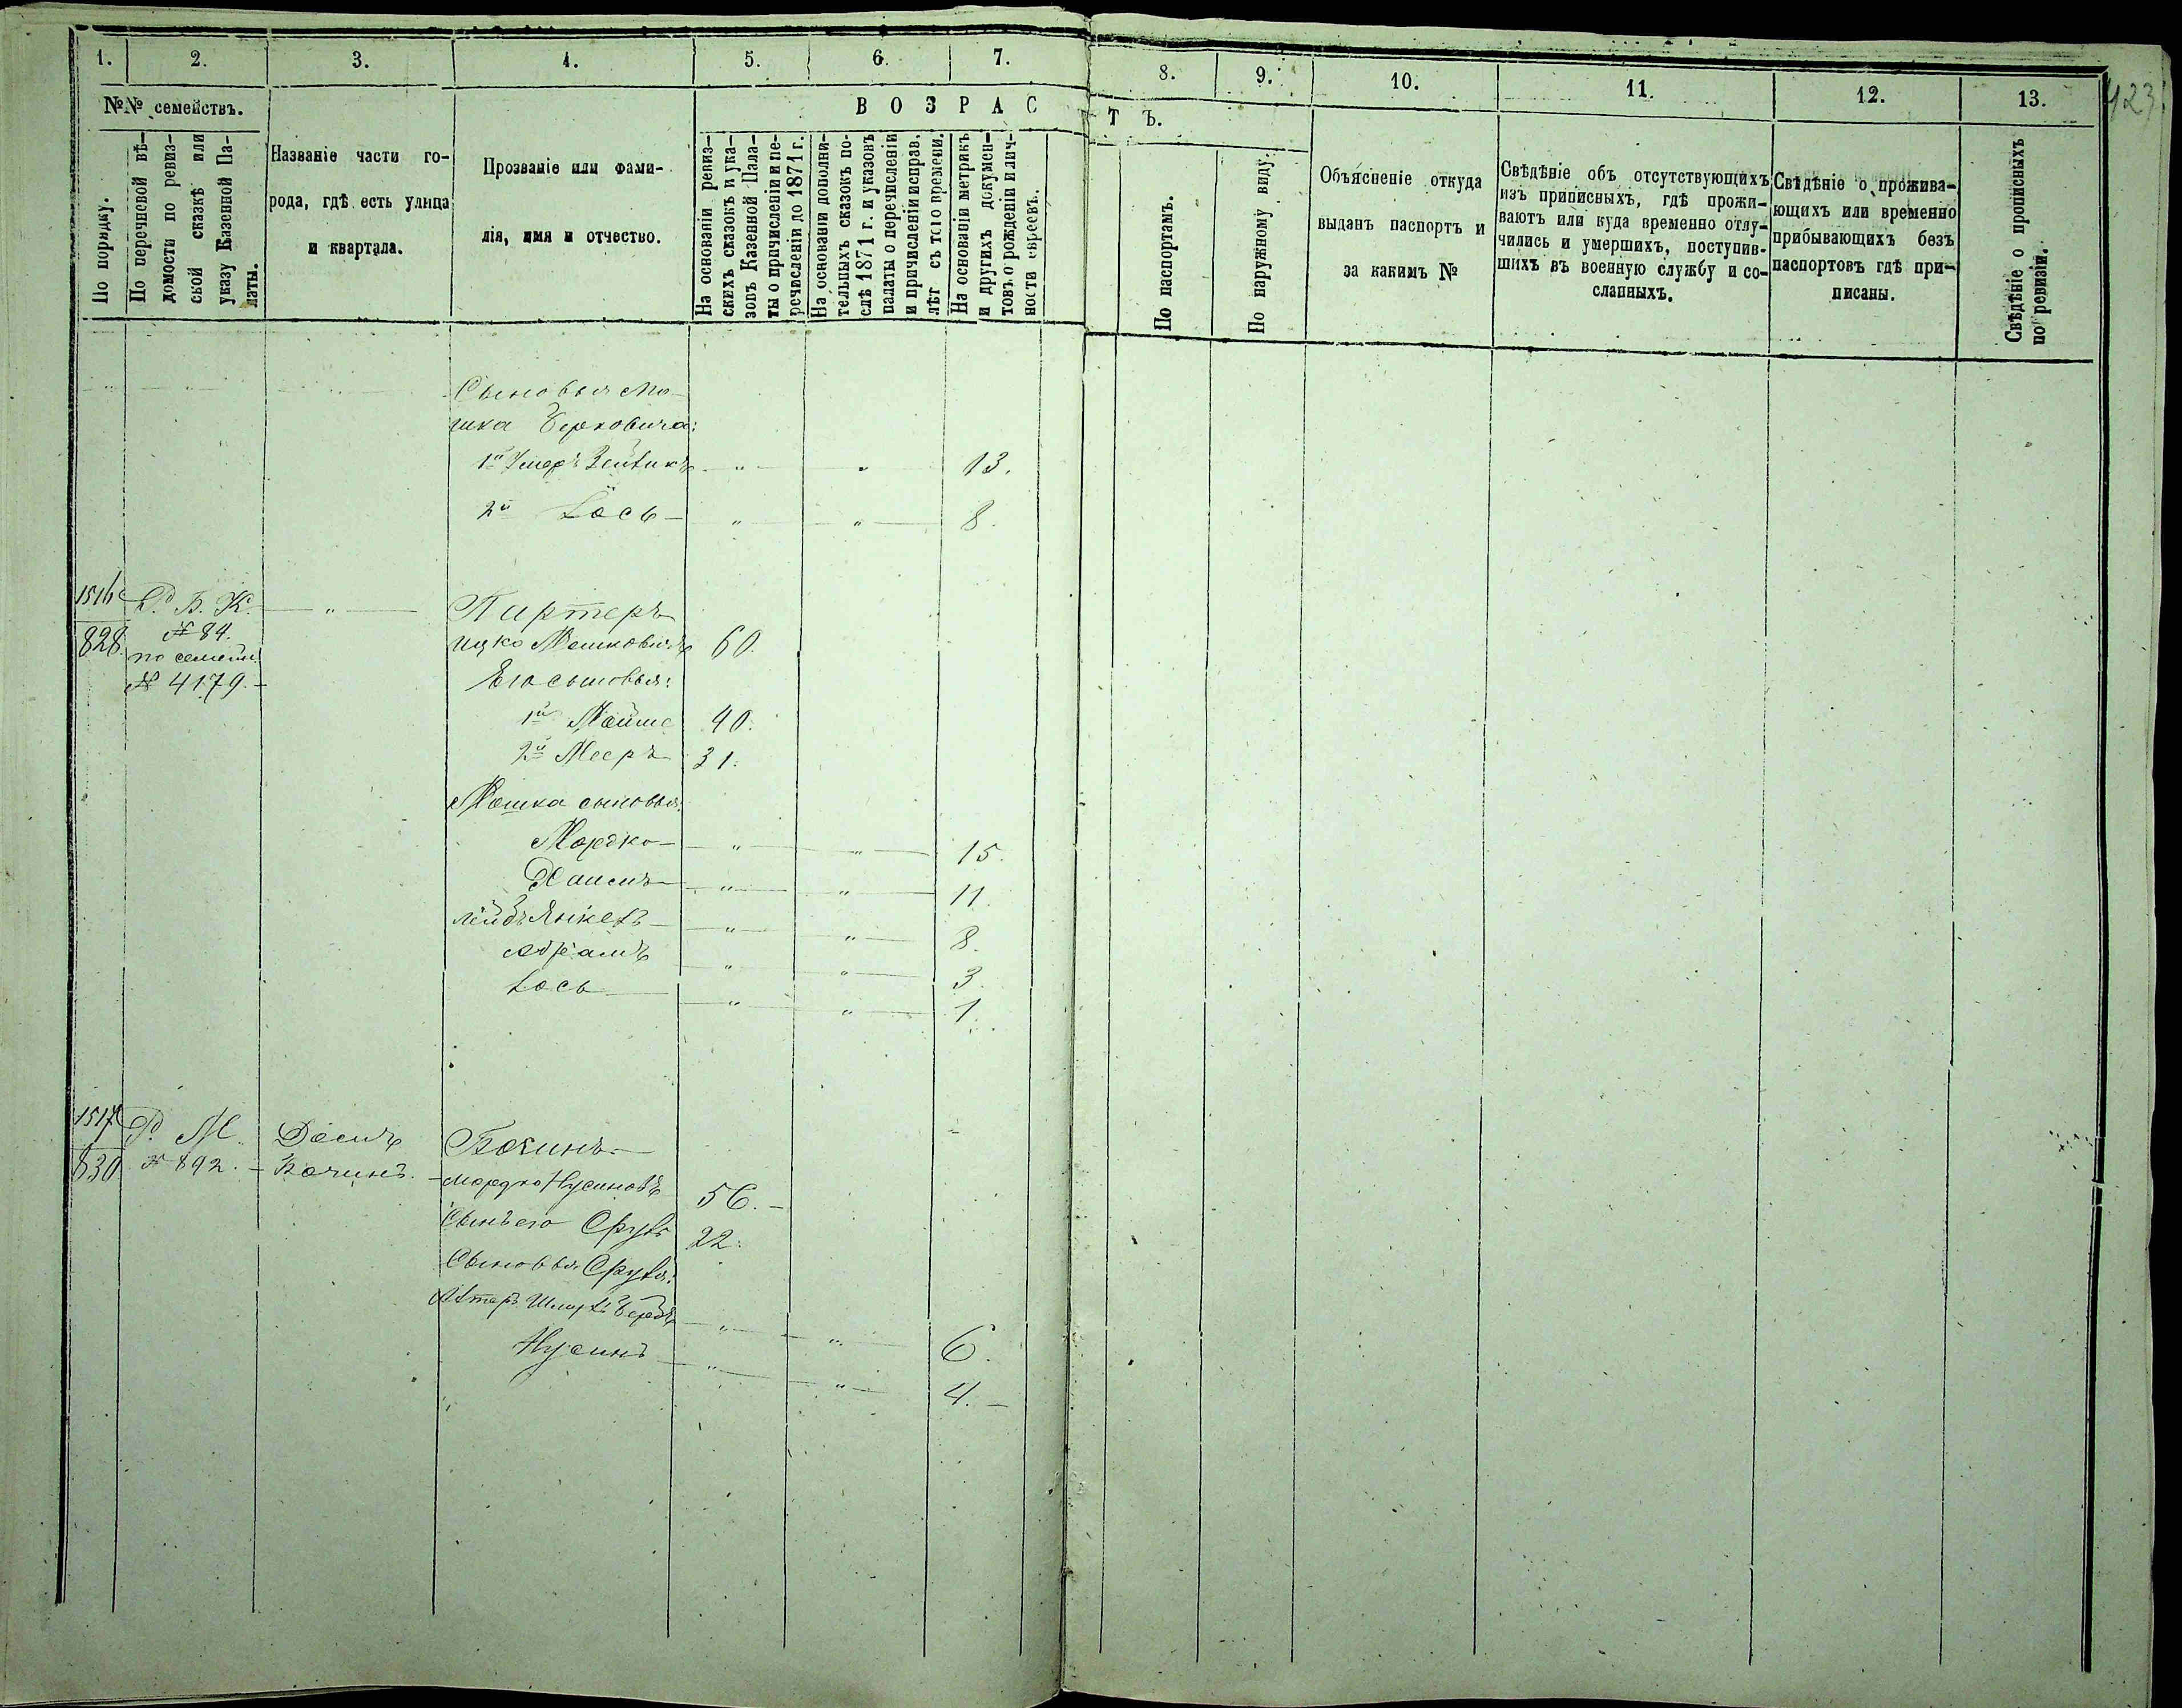 423.
1. 2. 3. 4. 5. 6. 7. 8. 9. 10. 11. 12. 13.
№№ семействъ.
По порядку.
По перечневой вѣ-
домости по ревиз-
ской сказкѣ или
указу Казенной Па-
латы.
Названіе части го-
рода, гдѣ есть улица
и квартала.
Прозваніе или фами-
лія, имя и отчество.
ВОЗРАСТЪ.
На основаніи ревиз-
скихъ сказокъ и ука-
зовъ Казенной Пала-
ты о причисленіи и пе-
речисленіи до 1871 г.
На основаніи дополни-
тельныхъ сказокъ по-
слѣ 1871 г. и указовъ
палаты о перечисленіи
и причисленіи исправ.
лѣт съ того времени.
На основаніи метрикъ
и другихъ докумен-
товъ о рожденіи и лич-
ности евреевъ.
По паспортамъ.
По наружному виду.
Объясненіе откуда
выданъ паспортъ и
за какимъ №
Свѣдѣніе объ отсутствующихъ
изъ приписныхъ, гдѣ прожи-
ваютъ или куда временно отлу-
чились и умершихъ, поступив-
шихъ въ военную службу и со-
сланныхъ.
Свѣдѣніе о прожива-
ющихъ или временно
прибывающихъ безъ
паспортовъ гдѣ при-
писаны.
Свѣдѣніе о прописныхъ
по ревизіи.
Сыновья Мо-
шка Берковича:
1й 13.
2й Іось 8.
1516 Р. Б. К. Пиртеръ
828 № 84. Ицко Мошковичъ 60.
по семейн.
№ 4179. Его сыновья:
1й Мойше 40.
2й Мееръ 31.
Мошка сыновья:
Мордко 15.
Хаимъ 11.
Лейбъ Янкель 8.
Абрамъ 3.
Іось 1.
1517 Р. М. Домъ Бочинъ
830 № 892. Бочинъ. Мордко Нусиновъ 56.
Сынъ его Сруль 22.
Сыновья Сруля:
Алтеръ Шмуль Беръ 6.
Нусинъ 4.